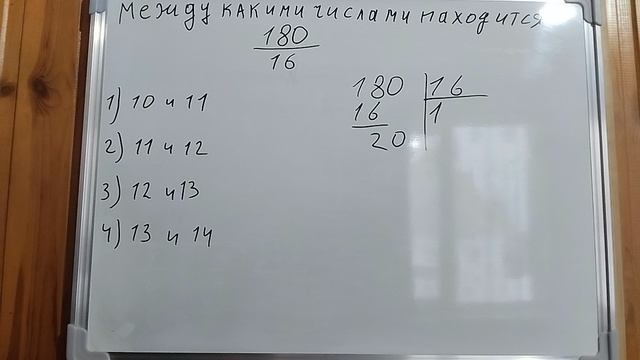 Между какими числами находится
180
16
1) 10 и 11
2) 11 и 12
3) 12 и 13
4) 13 и 14
180 16
16 1
20